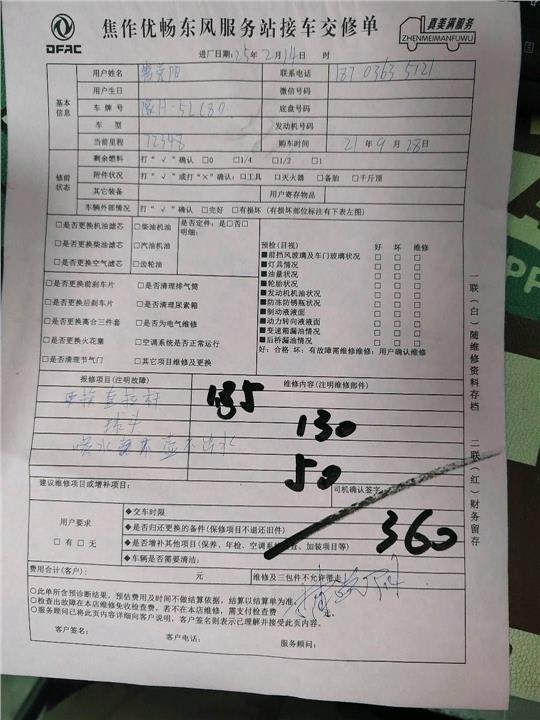 DFAC
焦作优畅东风服务站接车交修单
真美满服务
ZHENMEIMANFUWU
进厂日期:25年2月14日 时
基本信息
用户姓名
联系电话
用户生日 微信号码
车牌号 豫H-5LC80 底盘号码
车型 发动机号码
当前里程 72348 购车时间 21年9月28日
修前状态
剩余燃料 打“√”确认 □0 □1/4 □1/2 □1
附件状况 打“√”或打“×”确认:□工具 □灭火器 □备胎 □千斤顶
其它装备 用户寄存物品
车辆外部情况 打“√”确认 □完好 □有损坏(有损坏部位标注有下表左图)
□是否更换机油滤芯 □柴油机油
□是否更换柴油滤芯 □汽油机油
□是否更换空气滤芯 □齿轮油
是否定件:是□否□
明细:
□是否更换前刹车片 □是否清理排气筒
□是否更换后刹车片 □是否清理尿素箱
□是否更换离合三件套 □是否为电气维修
□是否更换火花塞 □空调系统是否正常运行
□是否清理节气门 □其它项目维修及更换
预检(目视) 好 坏 维修
■前挡风玻璃及车门玻璃状况 □ □ □
■灯具情况 □ □ □
■油量状况 □ □ □
■轮胎状况 □ □ □
■发动机机油状况 □ □ □
■防冻防锈瓶状况 □ □ □
■制动液液面 □ □ □
■动力转向液液面 □ □ □
■变速箱漏油情况 □ □ □
■后桥漏油情况 □ □ □
好:合格 坏:有故障需维修维修:用户确认维修
报修项目(注明故障) 维修内容(注明维修部件)
更换直拉杆 185
球头 130
喷水 不出水 50
建议维修项目或增补项目: 司机确认签字:
用户要求
□有□无
◆交车时限
360
◆是否归还更换的备件(保修项目不退还旧件)
◆是否增补其他项目(保养、年检、空调系统 、加装项目等)
◆车辆是否需要清洁:
费用合计(客户): 元 维修及三包件不允许带走
○此单所含预诊断结果,预估费用及时间不做结算依据,结算以结算单为准。
○检查出故障在本店维修免收检查费,若不在本店维修,需支付检查费
○服务顾问已将此页内容详细向客户说明,客户签名则表示已理解并接受此页内容。
客户签名: 客户电话: 服务顾问:
一联(白)随维修资料存档 二联(红)财务留存